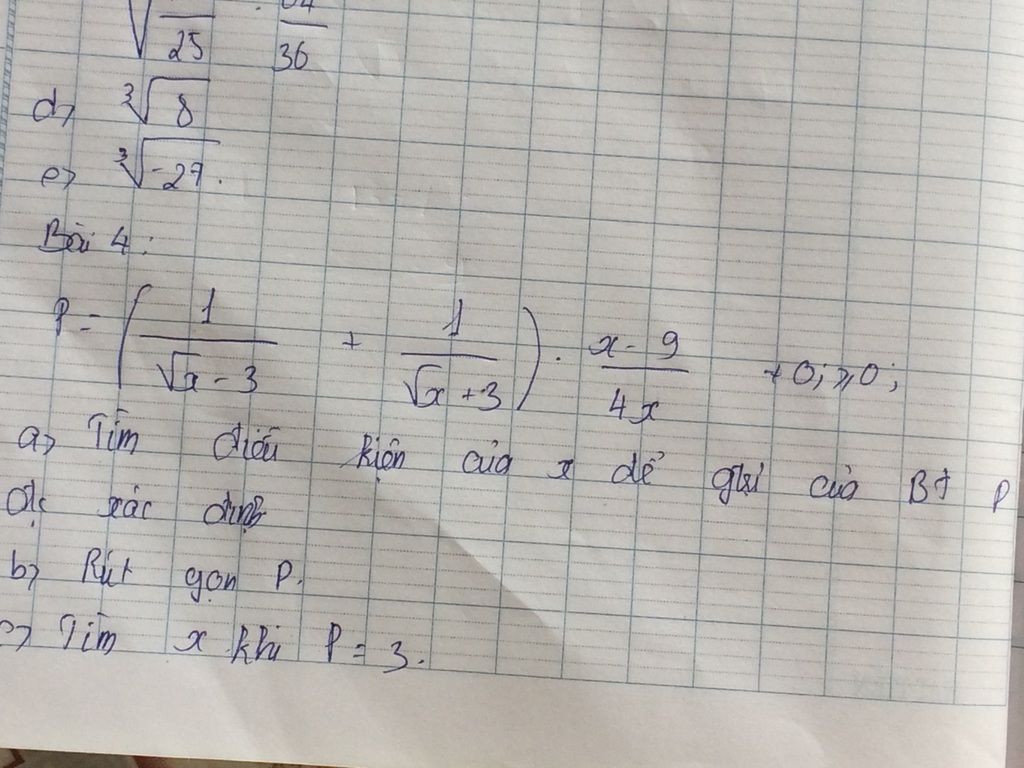 √ /25 . /36
d) ∛8
e) ∛-27.
Bài 4:
P = (1/(√x - 3) + 1/(√x + 3)) . (x - 9)/(4x) ≠ 0; ≥ 0;
a) Tìm điều kiện của x để gtri của Bt P
đc xác định
b) Rút gọn P.
c) Tìm x khi P = 3.